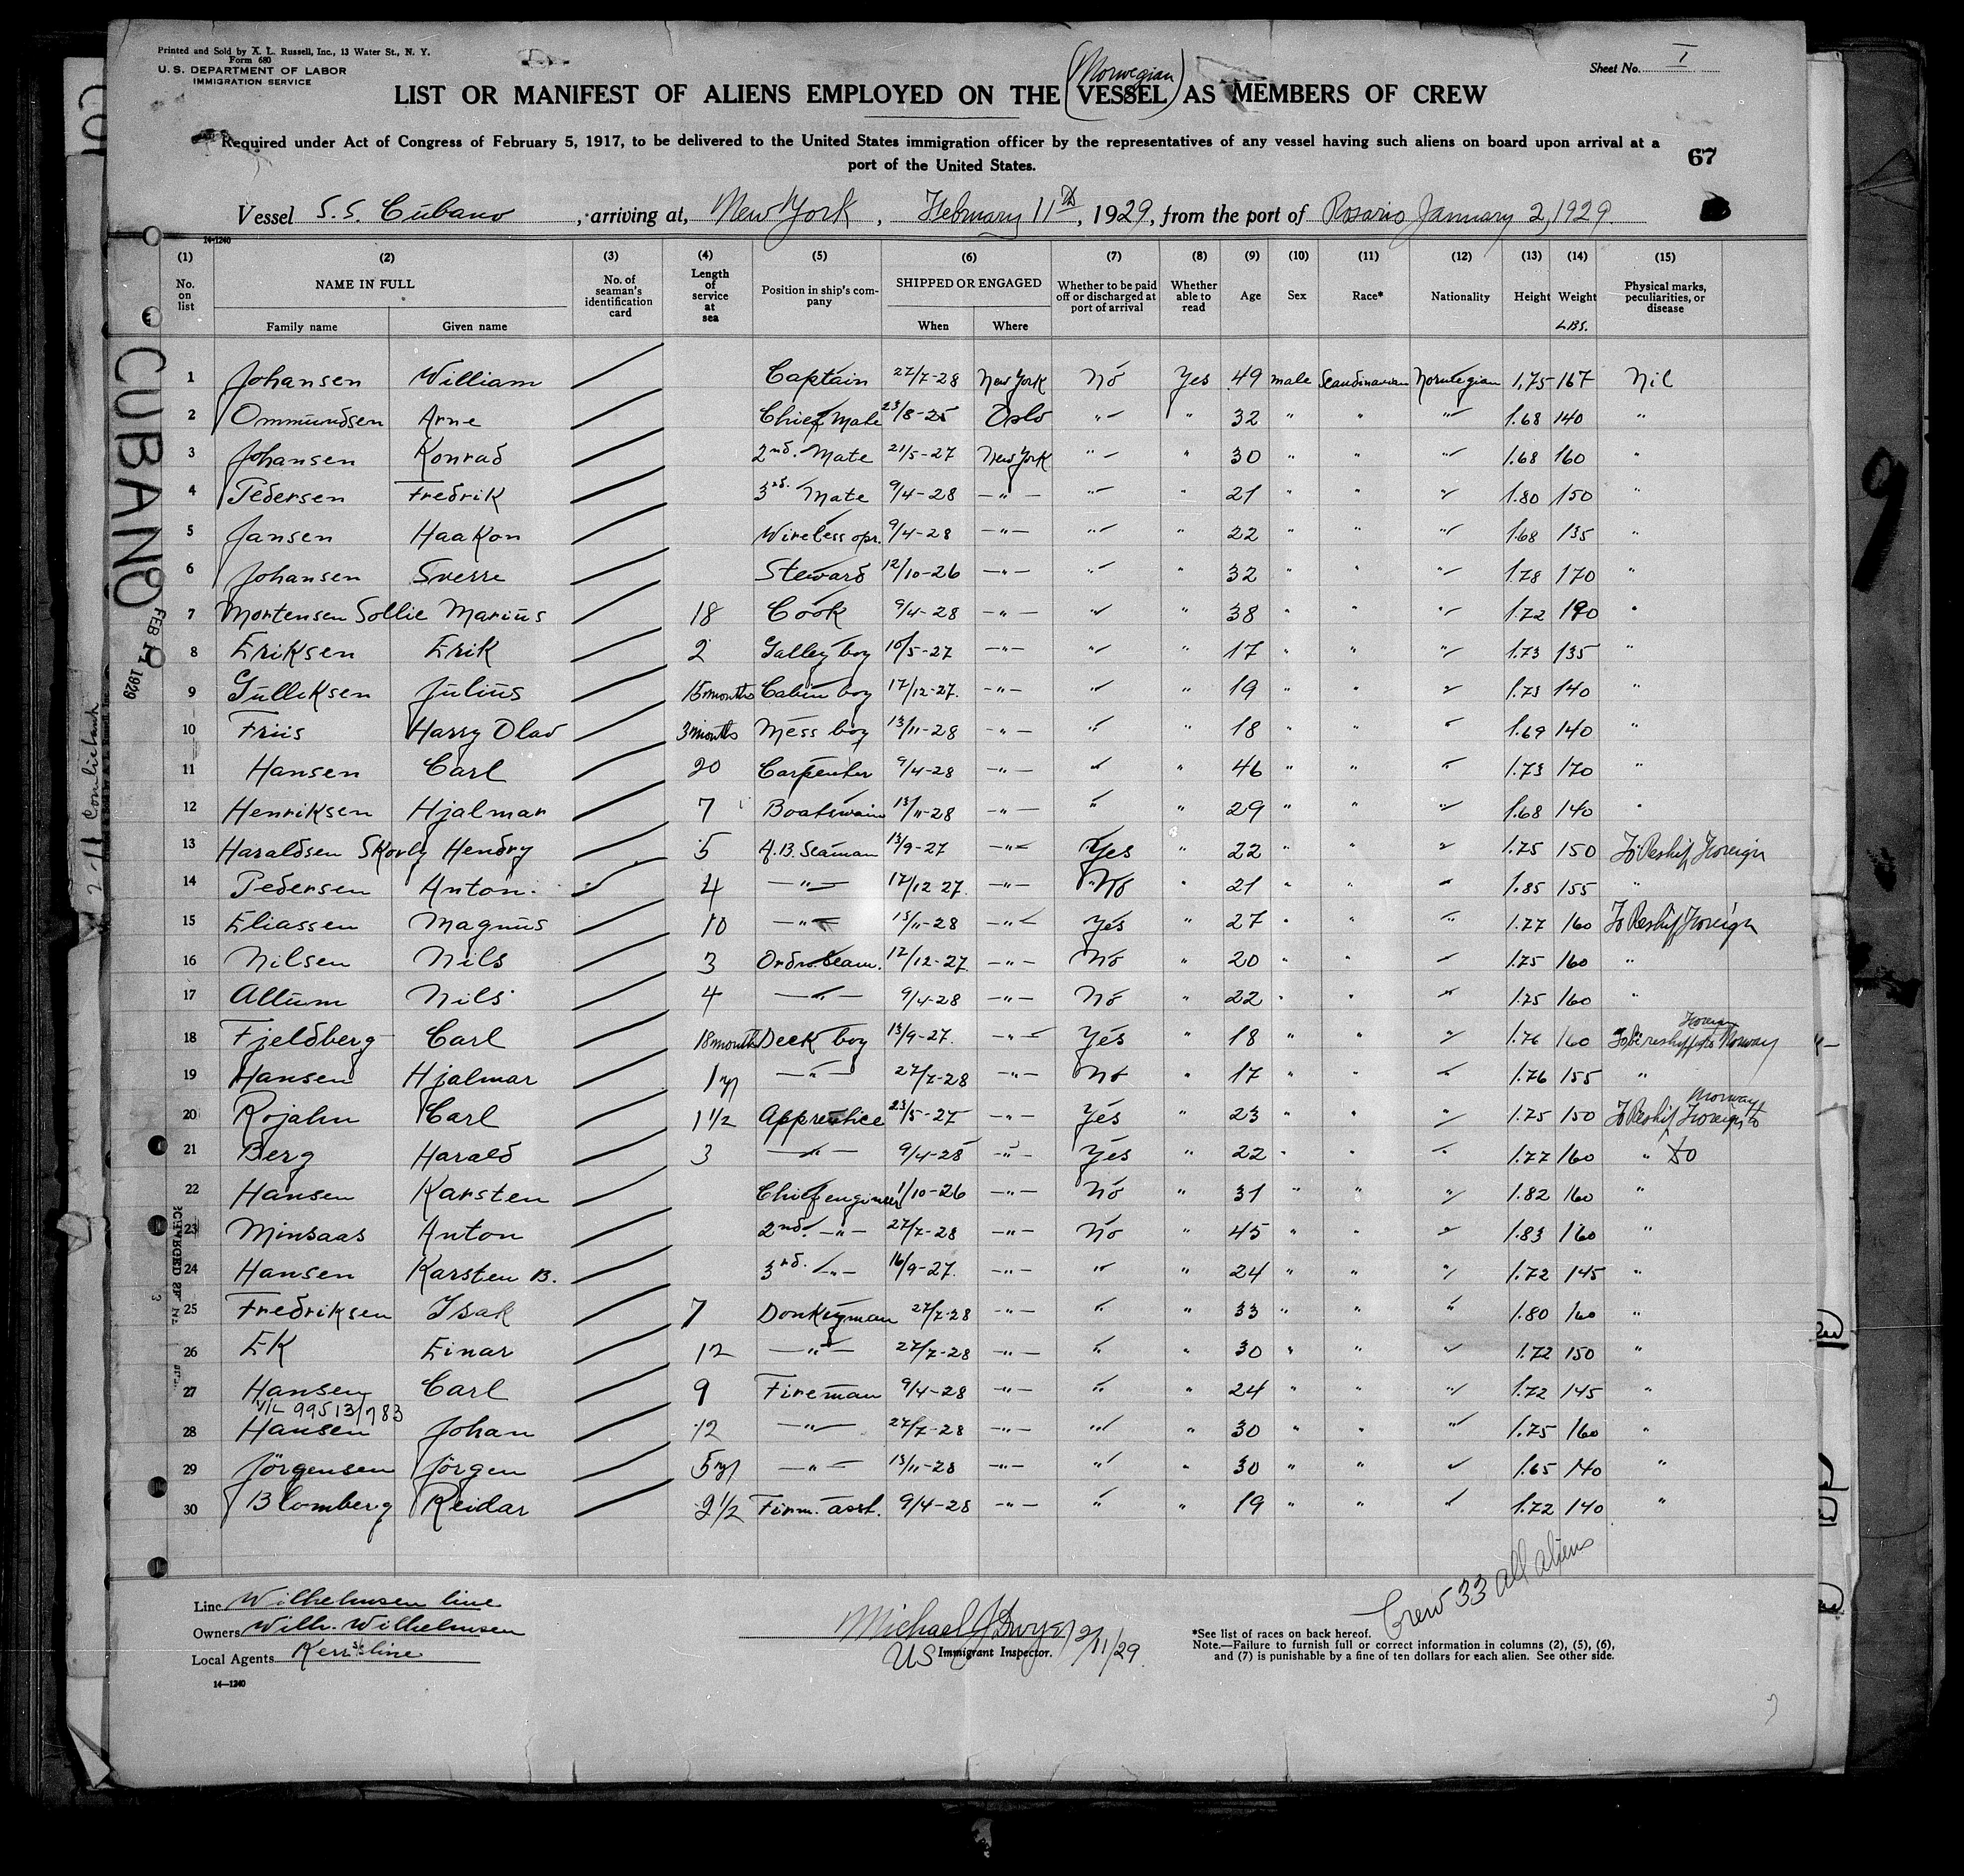 Printed and Sold by A. L. Russell, Inc., 13 Water St., N. Y.
Form 680
U. S. DEPARTMENT OF LABOR
IMMIGRATION SERVICE
Sheet No. I
(Norwegian)
LIST OR MANIFEST OF ALIENS EMPLOYED ON THE VESSEL AS MEMBERS OF CREW
Required under Act of Congress of February 5, 1917, to be delivered to the United States immigration officer by the representatives of any vessel having such aliens on board upon arrival at a
port of the United States.
67
Vessel S.S. Cubano, arriving at, New York, February 11th, 1929, from the port of Rosario January 2, 1929.
14-1240
(1) (2) (3) (4) (5) (6) (7) (8) (9) (10) (11) (12) (13) (14) (15)
No. on list NAME IN FULL Family name Given name No. of seaman's identification card Length of service at sea Position in ship's company SHIPPED OR ENGAGED When Where Whether to be paid off or discharged at port of arrival Whether able to read Age Sex Race* Nationality Height Weight LBS. Physical marks, peculiarities, or disease
1 Johansen William Captain 27/7-28 New York No Yes 49 male Scandinavian Norwegian 1,75 167 Nil
2 Ommundsen Arne Chief Mate 23/8-25 Oslo " " 32 " " " 1.68 140 "
3 Johansen Konrad 2nd. Mate 21/5-27 New York " " 30 " " " 1.68 160 "
4 Pedersen Fredrik 3rd. Mate 9/4-28 -"- " " 21 " " " 1.80 150 "
5 Jansen Haakon Wireless opr. 9/4-28 -"- " " 22 " " " 1.68 135 "
6 Johansen Sverre Steward 12/10-26 -"- " " 32 " " " 1.78 170 "
7 Mortensen Sollie Marius 18 Cook 9/4-28 -"- " " 38 " " " 1.72 190 "
8 Eriksen Erik 2 Galley boy 10/5-27 -"- " " 17 " " " 1.73 135 "
9 Gulliksen Julius 15 months Cabin boy 17/12-27. -"- " " 19 " " " 1.73 140 "
10 Friis Harry Olav 3 months Mess boy 13/11-28 -"- " " 18 " " " 1.69 140 "
11 Hansen Carl 20 Carpenter 9/4-28 -"- " " 46 " " " 1.73 170 "
12 Henriksen Hjalmar 7 Boatswain 13/11-28 -"- " " 29 " " " 1.68 140 "
13 Haraldsen Skovly Hendry 5 A.B. Seaman 13/9-27 -"- Yes " 22 " " " 1.75 150 To Reship Foreign
14 Pedersen Anton. 4 -"- 17/12 27. -"- No " 21 " " " 1.85 155 "
15 Eliassen Magnus 10 -"- 13/11-28 -"- Yes " 27 " " " 1.77 160 To Reship Foreign
16 Nilsen Nils 3 Ordn. Seam. 17/12-27. -"- No " 20 " " " 1.75 160 "
17 Allum Nils 4 -"- 9/4-28 -"- No " 22 " " " 1.75 160 "
18 Fjeldberg Carl 18 months Deck boy 13/9-27. -"- Yes " 18 " " " 1.76 160 To be reshipped to Norway
19 Hansen Hjalmar 1 yr -"- 27/7-28 -"- No " 17 " " " 1.76 155 "
20 Rojahn Carl 1 1/2 Apprentice 23/5-27 -"- Yes " 23 " " " 1.75 150 To Reship Foreign to Norway
21 Berg Harald 3 -"- 9/4-28 -"- Yes " 22 " " " 1.77 160 " Do
22 Hansen Karsten Chief engineer 1/10-26 -"- No " 31 " " " 1.82 160 "
23 Minsaas Anton 2nd. -"- 27/7-28 -"- No " 45 " " " 1.83 160 "
24 Hansen Karsten B. 3rd. -"- 16/9-27. -"- " " 24 " " " 1.72 145 "
25 Fredriksen Isak 7 Donkeyman 27/7-28 -"- " " 33 " " " 1.80 160 "
26 Ek Einar 12 -"- 27/7-28 -"- " " 30 " " " 1.72 150 "
27 Hansen Carl 9 Fireman 9/4-28 -"- " " 24 " " " 1.72 145 "
V/L 99513/783
28 Hansen Johan 12 -"- 27/7-28 -"- " " 30 " " " 1.75 160 "
29 Jörgensen Jörgen 5 yr -"- 13/11-28 -"- " " 30 " " " 1.65 140 "
30 Blomberg Reidar 2 1/2 Firm. asst. 9/4-28 -"- " " 19 " " " 1.72 140 "
Crew 33 all aliens
Line Wilhelmsen line
Owners Wilh. Wilhelmsen
Local Agents Kerr line
14-1240
Michael J Dwyer 2/11/29
US Immigrant Inspector.
*See list of races on back hereof.
Note.—Failure to furnish full or correct information in columns (2), (5), (6),
and (7) is punishable by a fine of ten dollars for each alien. See other side.
CUBANO
FEB 11 1929
9